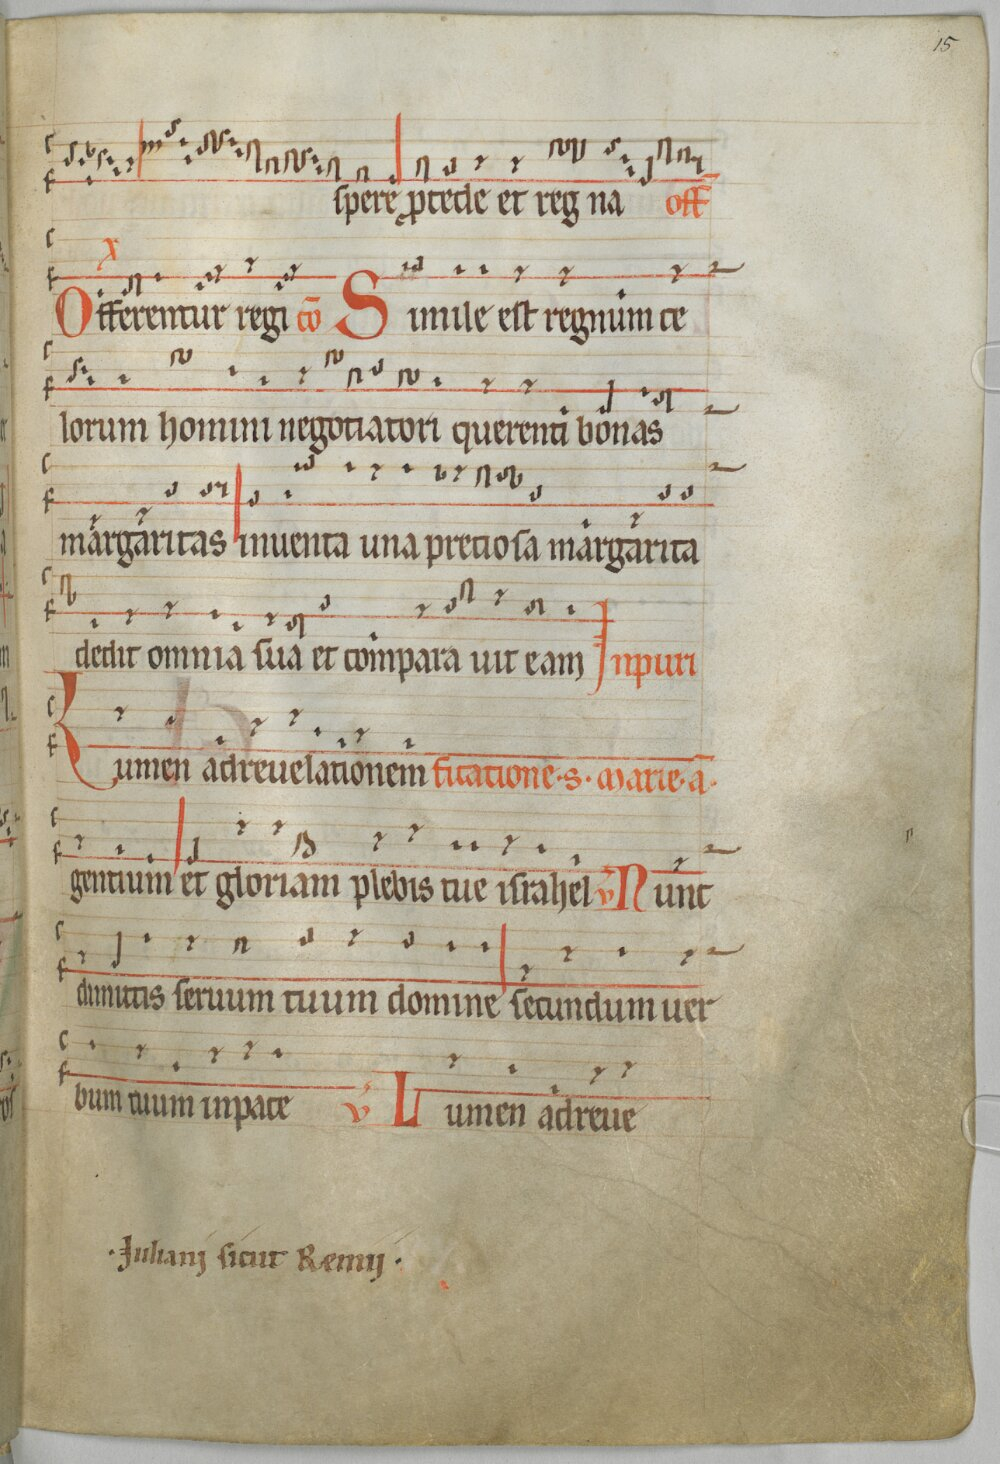 15
spere ꝓcede et reg na off̄
Offerentur regi cō Simile est regnum ce
lorum homini negotiatori querenti bonas
margaritas inuenta una preciosa margarita
dedit omnia sua et compara uit eam Inpuri
Lumen adreuelationem ficatione·s·marie·a̅·
gentium et gloriam plebis tue israhel v̄ Nunc
dimittis seruum tuum domine secundum uer
bum tuum inpace v̄ Lumen adreue
·Juliani sicut Remij·